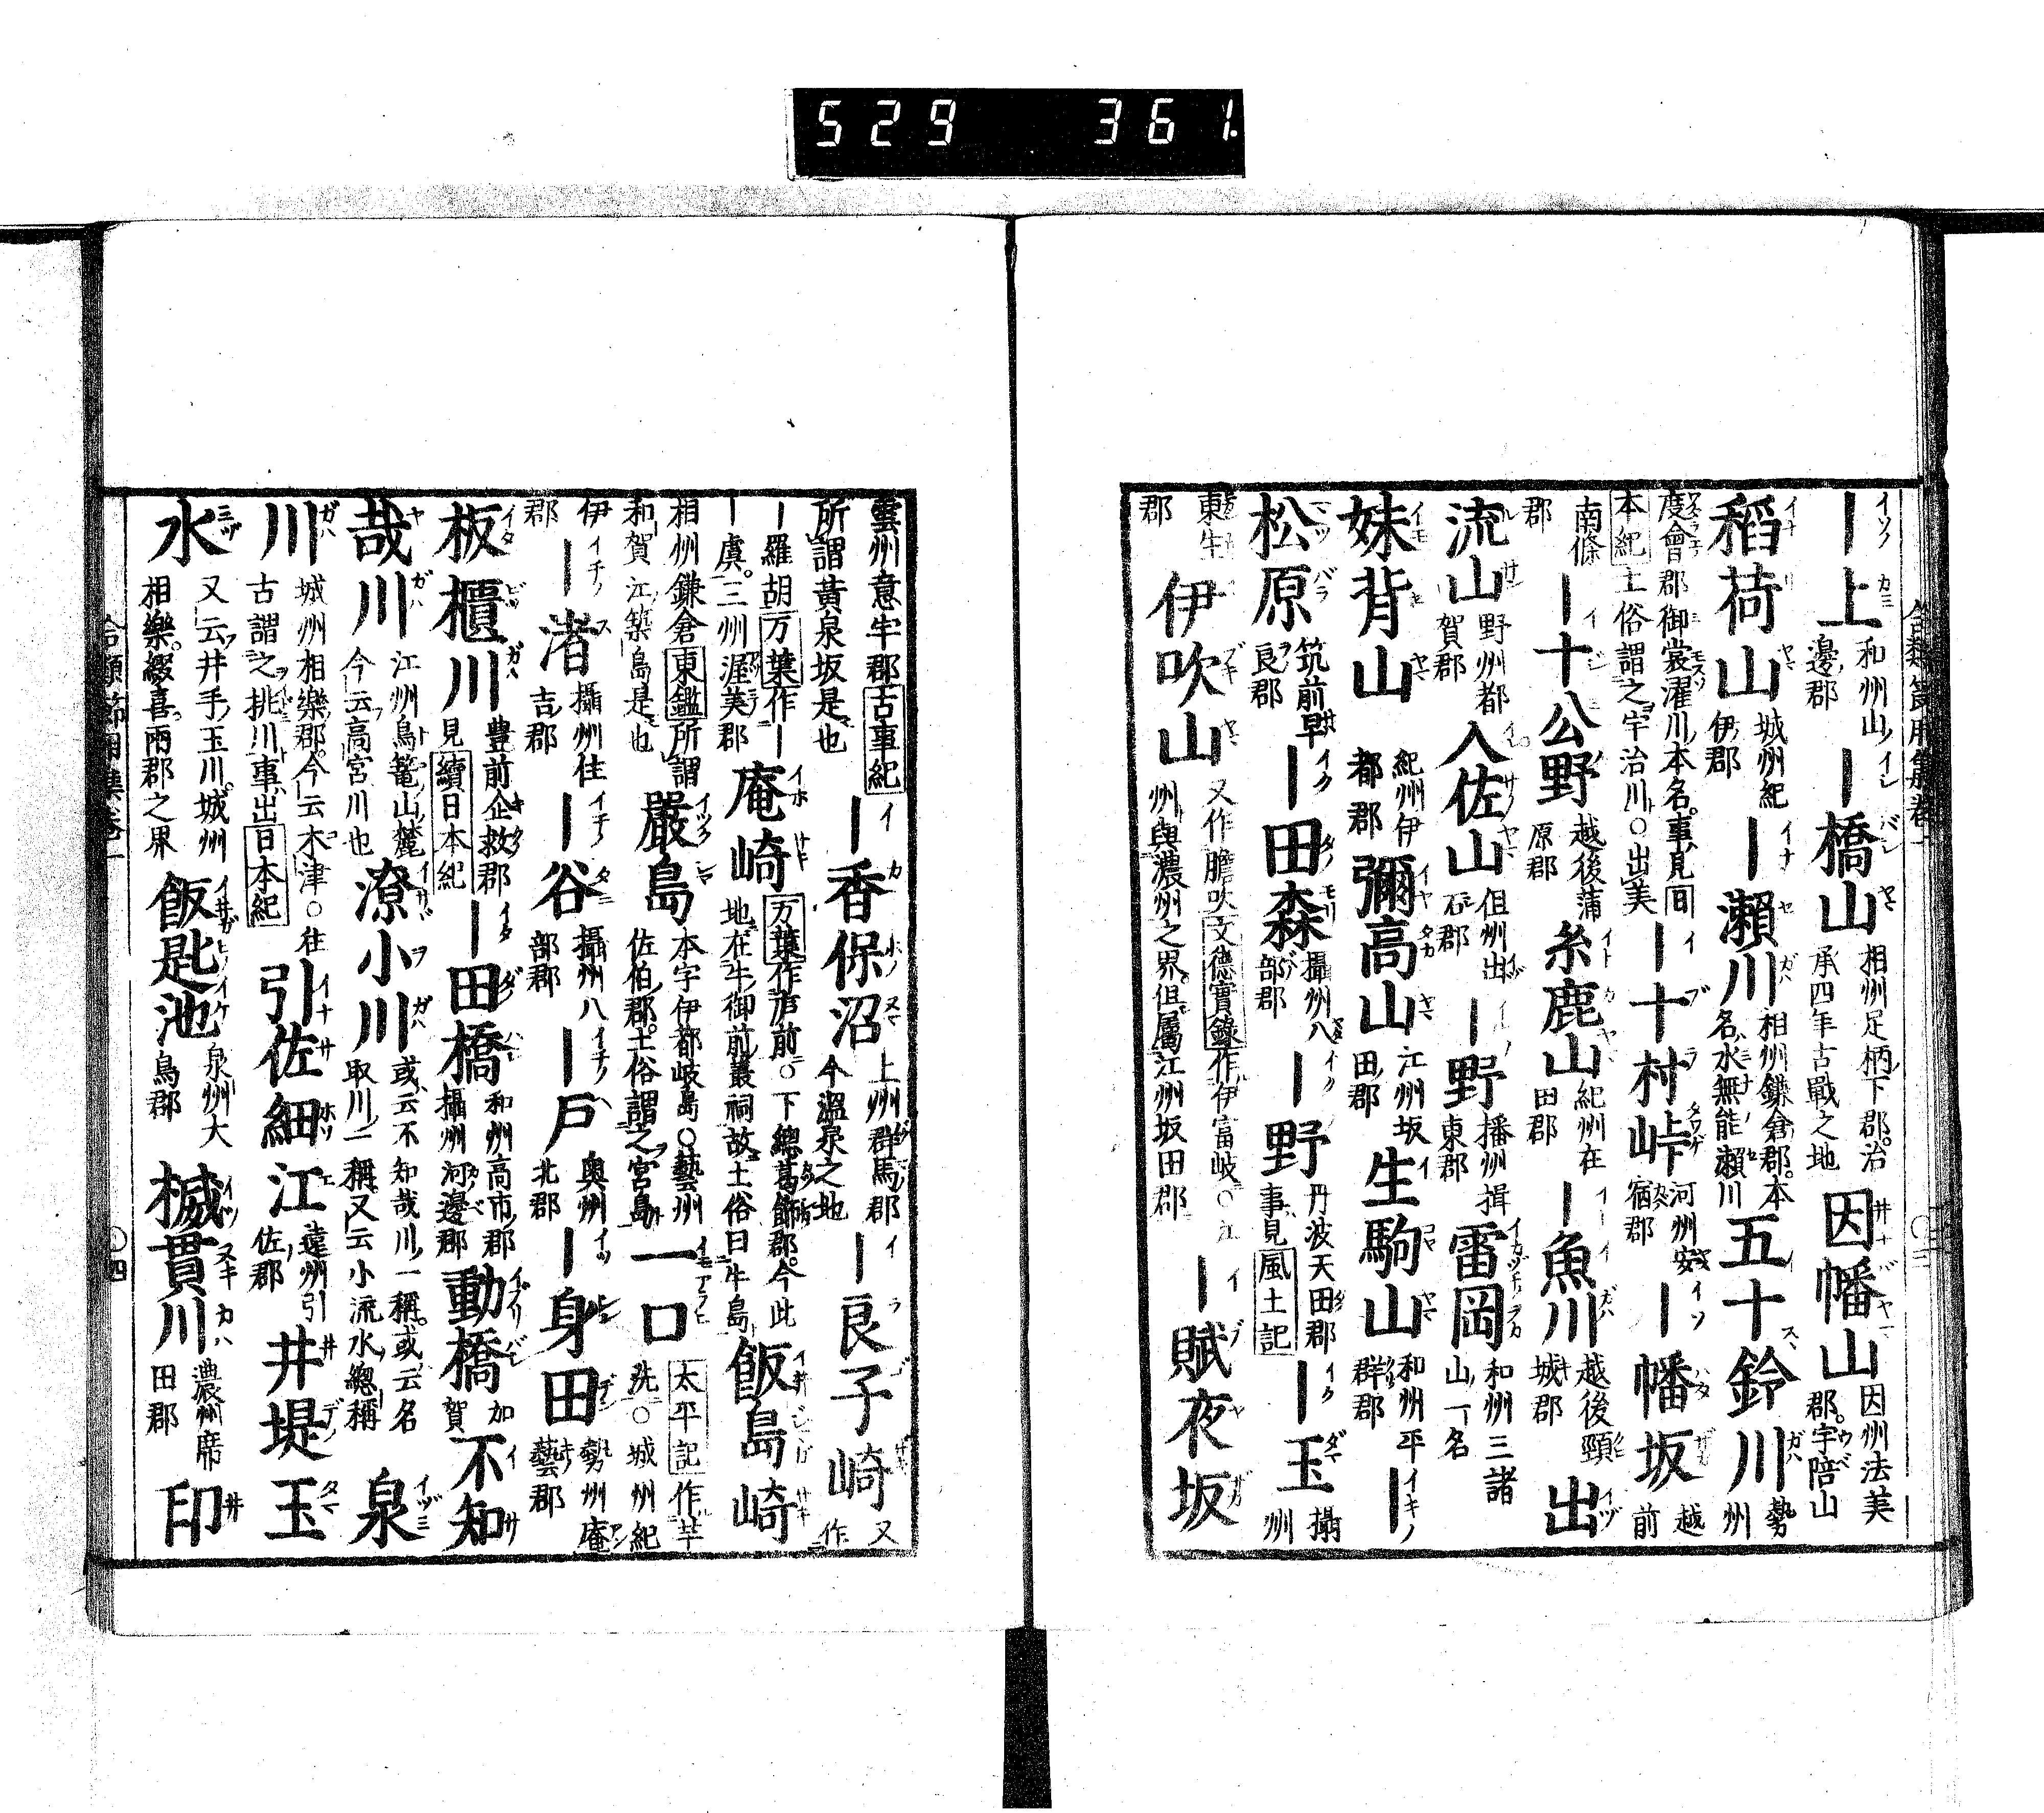 529 361.
｜上 和州山邊郡 ｜橋山 相州足柄下郡。治承四年古戰之地 因幡山 因州法美郡。宇陪山
稻荷山 城州紀伊郡 ｜瀨川 相州鎌倉郡。本名水無能瀨川 五十鈴川 勢州
度會郡御裳濯川本名。事見日本紀土俗謂之宇治川○出美 ｜十村峠 河州安宿郡 ｜幡坂 越前
南條郡 ｜十公野 越後蒲原郡 糸鹿山 紀州在田郡 ｜魚川 越後頸城郡 出
流山 野州都賀郡 入佐山 但州出石郡 ｜野 播州揖東郡 雷岡 和州三諸山一名
妹背山 紀州伊都郡 彌高山 江州坂田郡 生駒山 和州平群郡 ｜
松原 筑前早良郡 ｜田森 攝州八部郡 ｜野 丹波天田郡事見風土記 ｜玉 攝州
東生郡 伊吹山 又作膽吹文德實錄作伊富岐○江州與濃州之界。但屬江州坂田郡 ｜賦夜坂
雲州意宇郡古事紀所謂黃泉坂是也 ｜香保沼 上州群馬郡今溫泉之地 ｜良子崎 又作
｜羅胡万葉作｜｜虞。三州渥美郡 庵崎 万葉作庐前○下總葛餝郡。今此地在牛御前叢祠故土俗曰牛島 飯島崎
相州鎌倉東鑑所謂和賀江築島是也 嚴島 本字伊都岐島○藝州佐伯郡。土俗謂之宮島 一口 太平記作芋洗○城州紀
伊郡 ｜渚 攝州住吉郡 ｜谷 攝州八部郡 ｜戶 奥州北郡 ｜身田 勢州庵藝郡
板櫃川 豊前企救郡見續日本紀 ｜田橋 和州高市郡攝州河邊郡 動橋 加賀 不知
哉川 江州鳥篭山麓今云高宮川也 潦小川 或云不知哉川一稱。或云名取川一稱又云小流水總稱 泉
川 城州相樂郡。今云木津○往古謂之挑川事出日本紀 引佐細江 遠州引佐郡 井堤玉
水 又云井手玉川。城州相樂。綴喜兩郡之界 飯匙池 泉州大鳥郡 檝貫川 濃州席田郡 印
合類節用集卷一
〇四